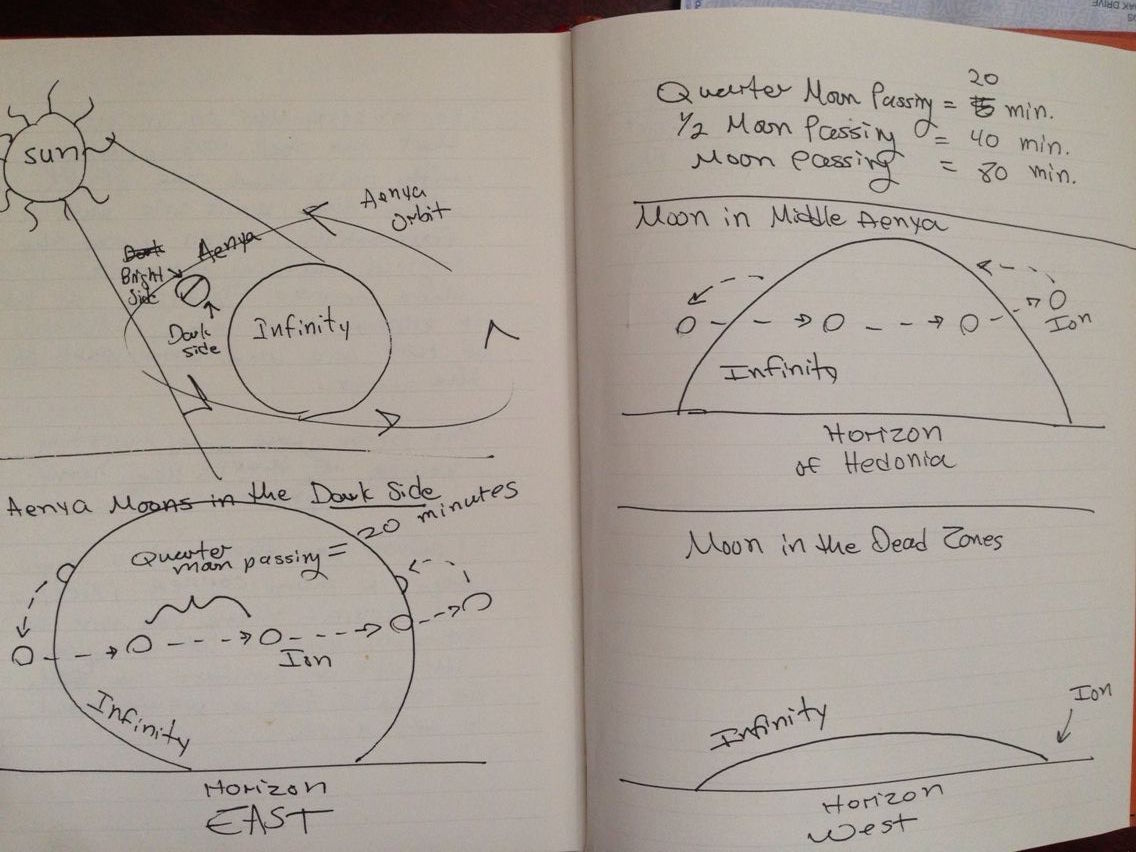 Sun
Aenya
Orbit
Aenya
Dark
Bright
Side
Dark
side
Infinity
Aenya Moons in the Dark Side
Quarter
moon passing = 20 minutes
Ion
Infinity
Horizon
EAST
20
Quarter Moon Passing = 15 min.
1/2 Moon Passing = 40 min.
Moon passing = 80 min.
Moon in Middle Aenya
Ion
Infinity
Horizon
of Hedonia
Moon in the Dead Zones
Ion
Infinity
Horizon
West
AK DRIVE